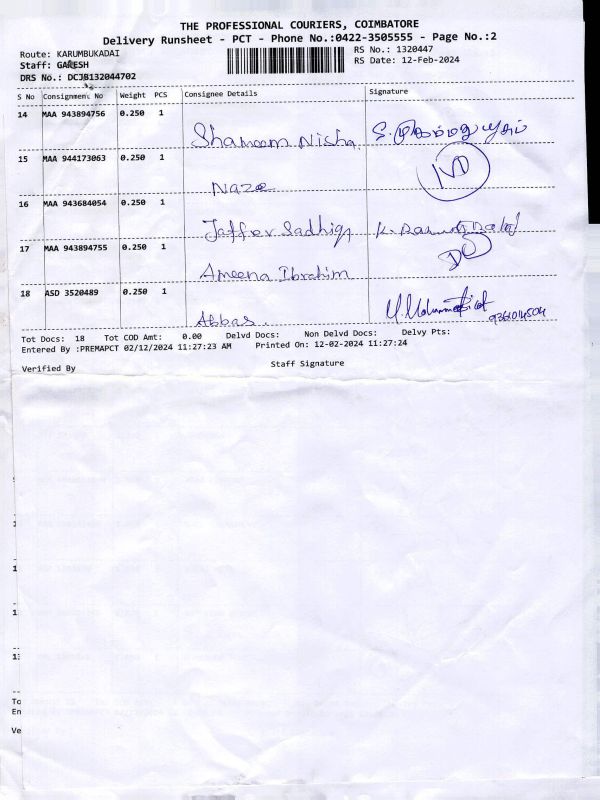 THE PROFESSIONAL COURIERS, COIMBATORE
Delivery Runsheet - PCT - Phone No.:0422-3505555 - Page No.:2
Route: KARUMBUKADAI
RS No.: 1320447
Staff: GANESH
RS Date: 12-Feb-2024
DRS No.: DCJB132044702
S No Consignment No Weight PCS Consignee Details Signature
14 MAA 943894756 0.250 1
Shameem Nisha
15 MAA 944173063 0.250 1
Naze
16 MAA 943684054 0.250 1
Jaffer Sadhiq
17 MAA 943894755 0.250 1
Ameena Ibrahim
18 ASD 3520489 0.250 1
Abbas.
Tot Docs: 18 Tot COD Amt: 0.00 Delvd Docs: Non Delvd Docs: Delvy Pts:
Entered By :PREMAPCT 02/12/2024 11:27:23 AM Printed On: 12-02-2024 11:27:24
Verified By Staff Signature
To
En
Ve